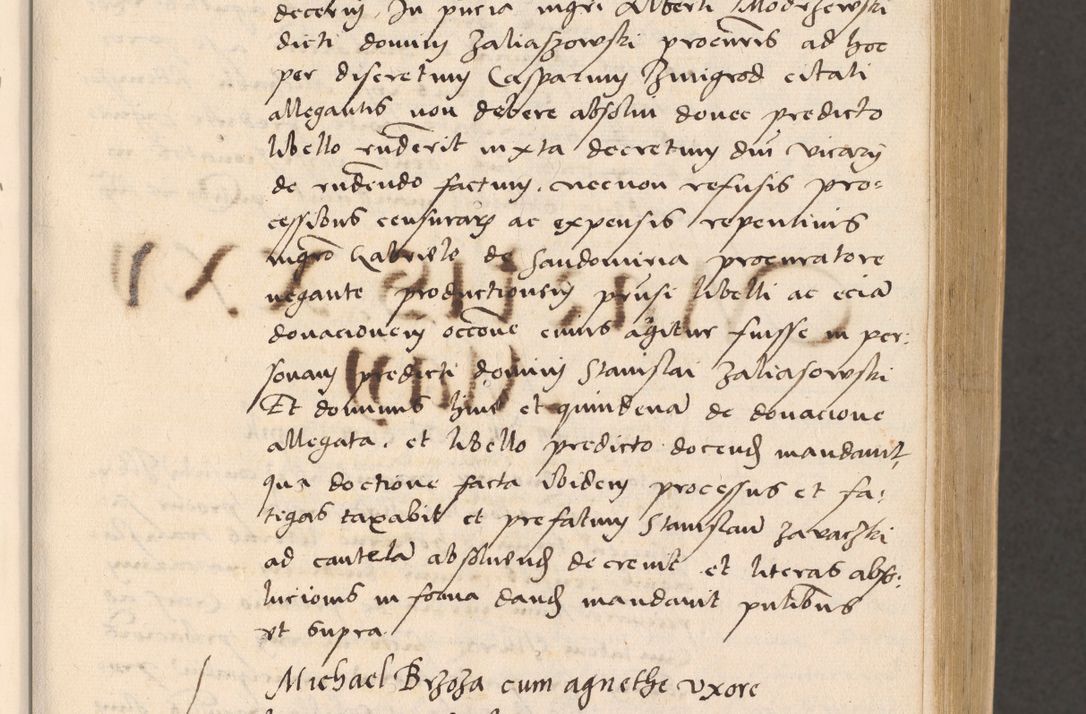 decerni. In pncia mgri Alberti Modrzewski
dicti domini Zaliaszowski procuris ad hoc
per discretum Casparum Zmigrod citati
allegantis non debere absolui donec predicto
libello rnderit iuxta decretum dni vicarij
de rndendo factum. necnon refusis pro=
cessibus censurarum ac expensis repentinis
mgro Gabriele de Sandomiria procuratore
negante productionem prnsi libelli ac eciam
donacionem occone cuius agitur fuisse in per=
sonam predicti domini Stanislai Zaliasowski
Et dominus hinc et quindena de donacione
allegata. et libello predicto docend mandauit,
qua doctione facta ibidem processus et fa=
tigas taxabit et prefatum Stanislaum Zarachski
ad cautela absoluend decreuit et literas abso=
lucionis in forma dand mandauit pntibus
vt supra.
Michael Brzoza cum agnethe vxore